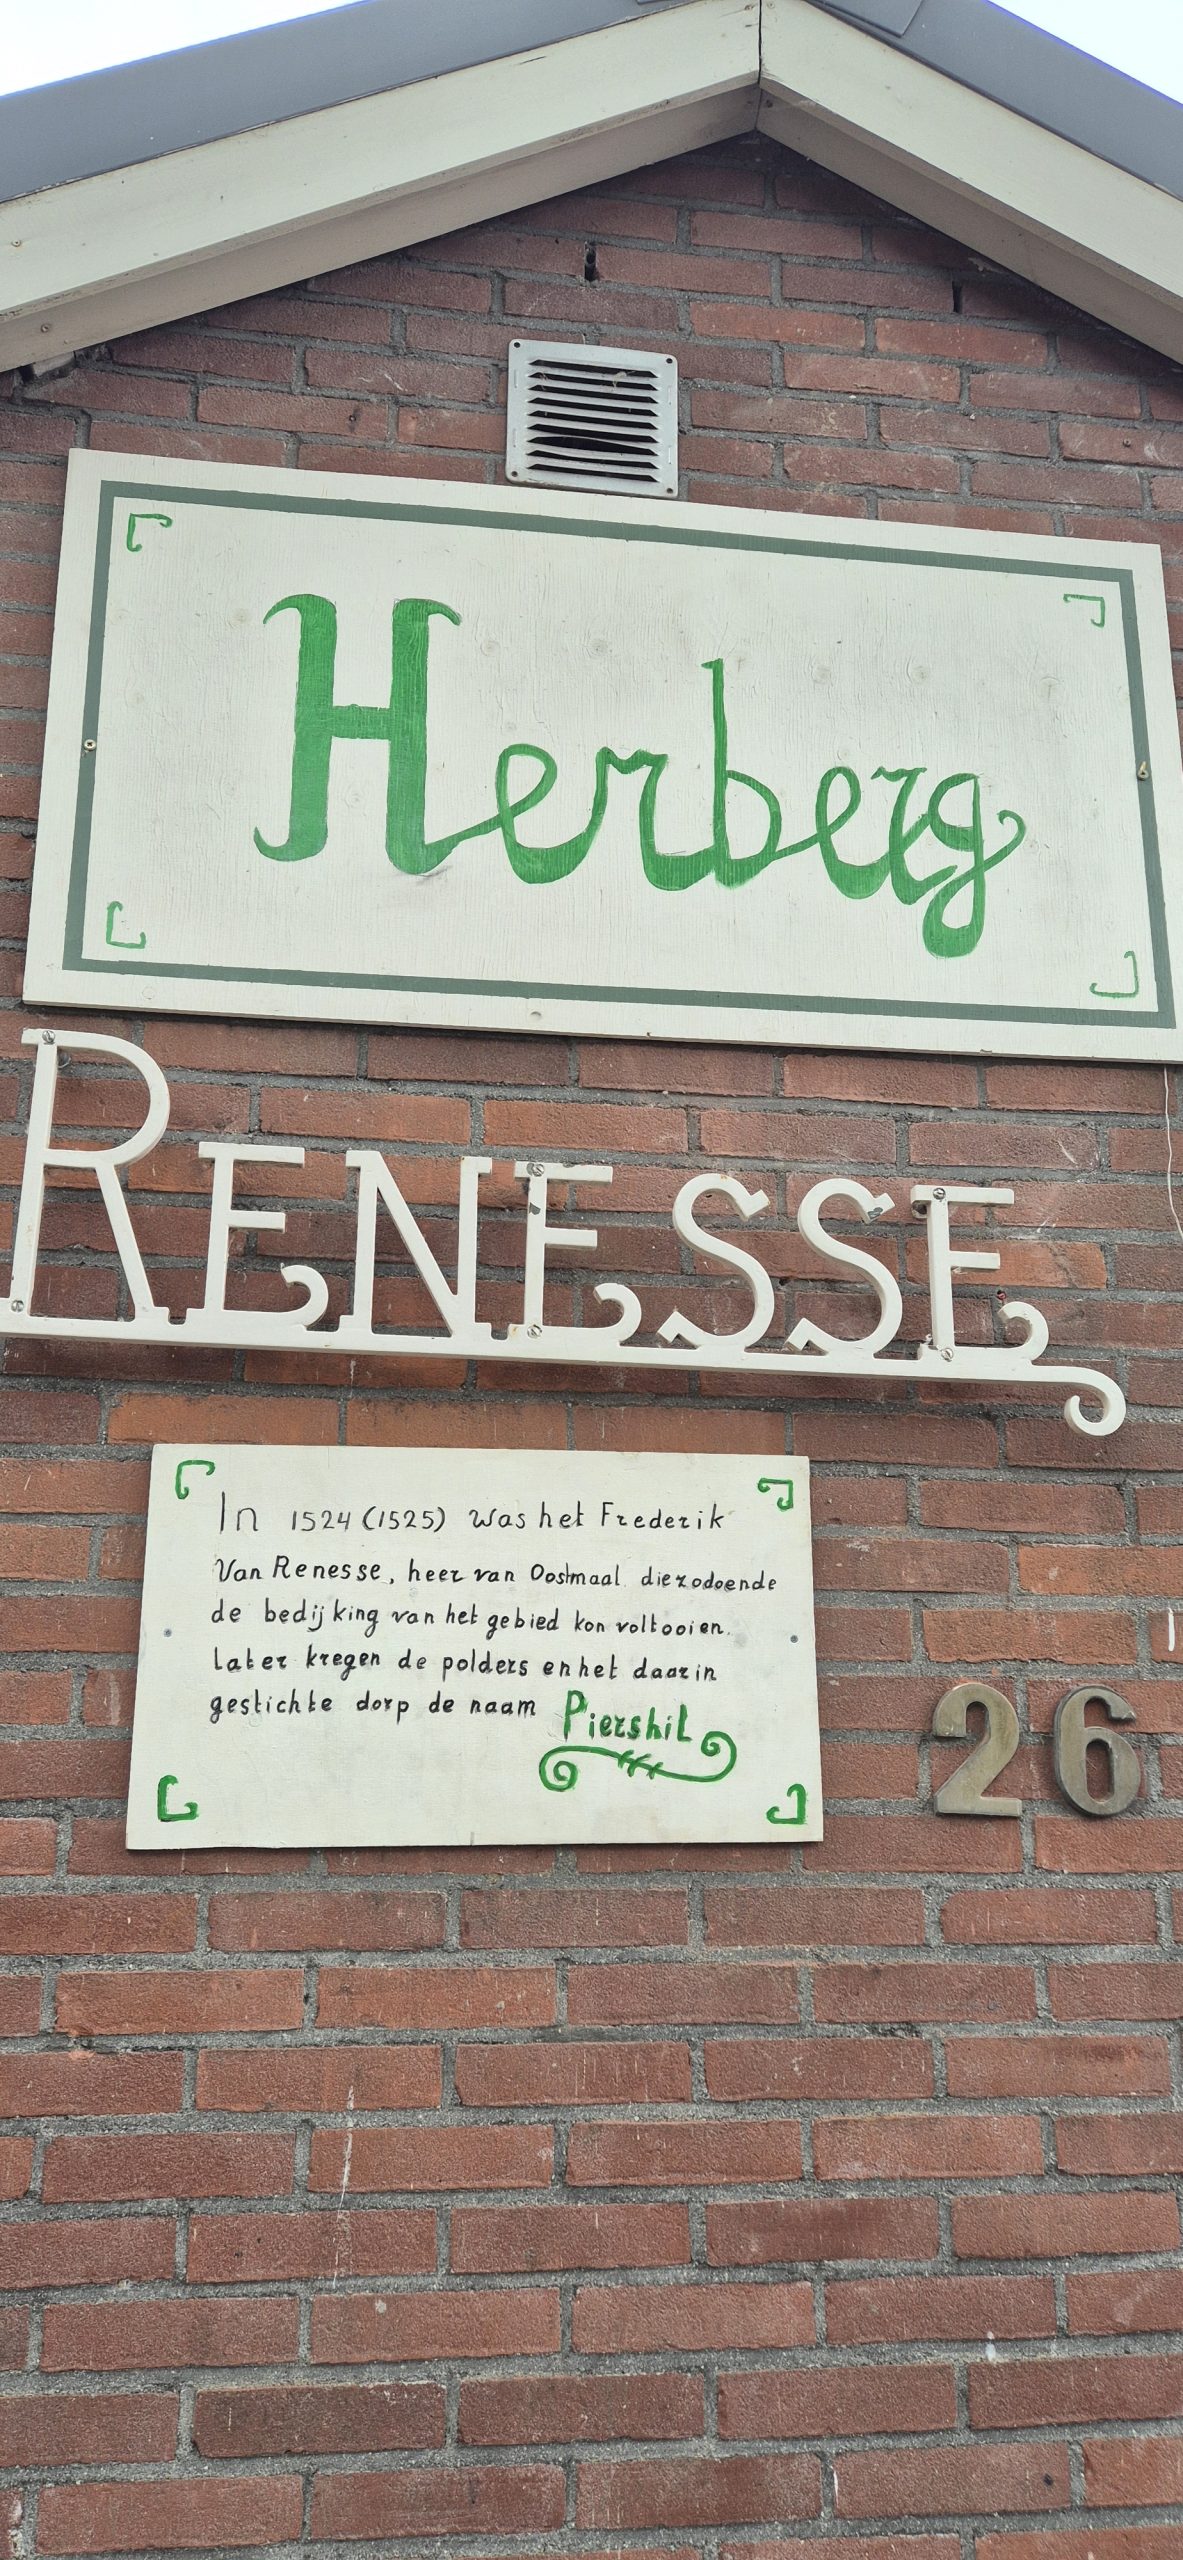 Herberg
RENESSE
In 1524 (1525) was het Frederik
Van Renesse, heer van Oostmaal die zodoende
de bedijking van het gebied kon voltooien.
Later kregen de polders en het daarin
gestichte dorp de naam Piershil
26